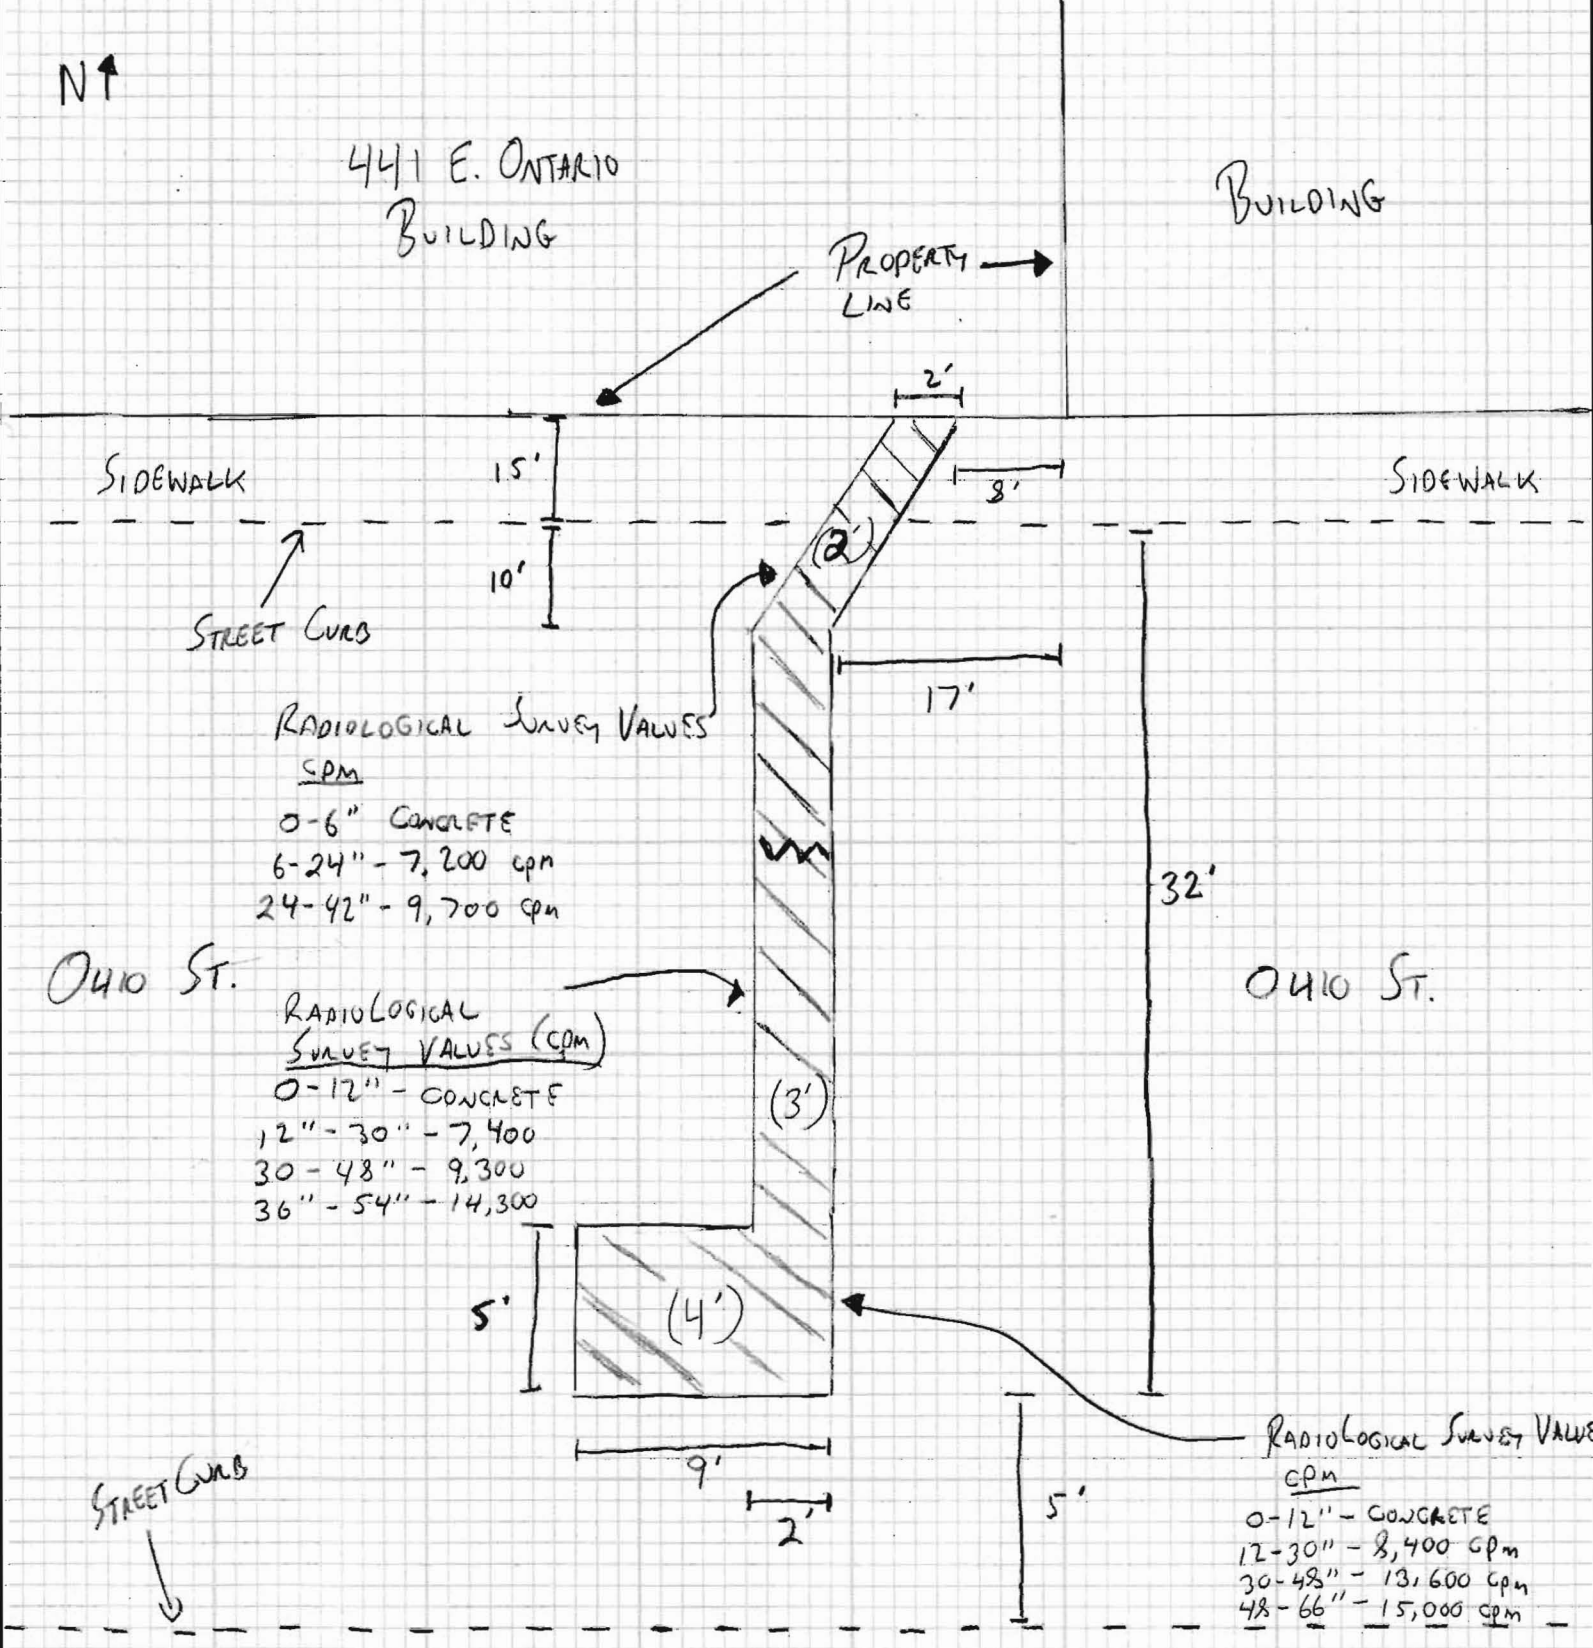 N
441 E. ONTARIO
BUILDING
BUILDING
PROPERTY
LINE
2'
SIDEWALK
15'
8'
SIDEWALK
(2')
10'
STREET CURB
17'
RADIOLOGICAL SURVEY VALUES
CPM
0-6" CONCRETE
6-24" - 7,200 cpm
24-42" - 9,700 cpm
32'
OHIO ST.
OHIO ST.
RADIOLOGICAL
SURVEY VALUES (cpm)
0-12" - CONCRETE
12" - 30" - 7,400
30 - 48" - 9,300
36" - 54" - 14,300
(3')
5'
(4')
9'
2'
5'
STREET CURB
RADIOLOGICAL SURVEY VALUE
cpm
0-12" - CONCRETE
12-30" - 8,400 cpm
30-48" - 13,600 cpm
48-66" - 15,000 cpm